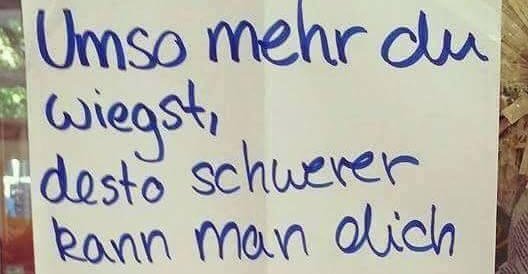 Umso mehr du
wiegst,
desto schwerer
kann man dich